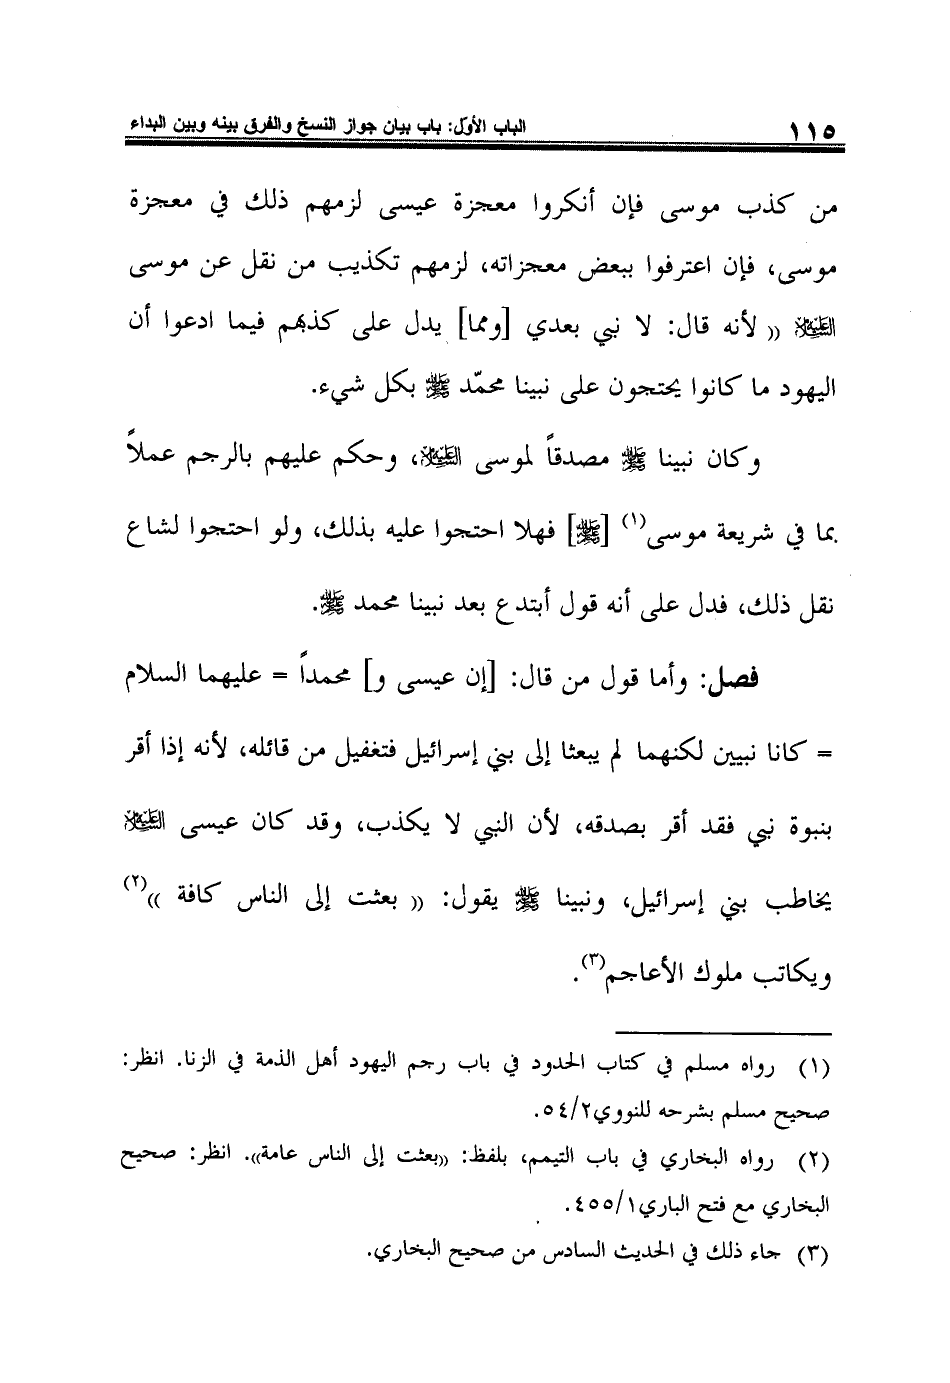 ١١٥ الباب الأول: باب بيان جواز النسخ والفرق بينه وبين البداء
من كذب موسى فإن أنكروا معجزة عيسى لزمهم ذلك في معجزة
موسى، فإن اعترفوا ببعض معجزاته، لزمهم تكذيب من نقل عن موسى
العليه السلام (( لأنه قال: لا نبي بعدي [ومما] يدل على كذبهم فيما ادعوا أن
اليهود ما كانوا يحتجون على نبينا محمّد ﷺ بكل شيء.
وكان نبينا ﷺ مصدقاً لموسى عليه السلام، وحكم عليهم بالرجم عملاً
بما في شريعة موسى(١) [ﷺ] فهلا احتجوا عليه بذلك، ولو احتجوا لشاع
نقل ذلك، فدل على أنه قول أبتدع بعد نبينا محمد ﷺ.
فصل: وأما قول من قال: [إن عيسى و] محمداً = عليهما السلام
= كانا نبيين لكنهما لم يبعثا إلى بني إسرائيل فتغفيل من قائله، لأنه إذا أقر
بنبوة نبي فقد أقر بصدقه، لأن النبي لا يكذب، وقد كان عيسى عليه السلام
يخاطب بني إسرائيل، ونبينا ﷺ يقول: (( بعثت إلى الناس كافة ))(٢)
ويكاتب ملوك الأعاجم(٣).
(١) رواه مسلم في كتاب الحدود في باب رجم اليهود أهل الذمة في الزنا. انظر:
صحيح مسلم بشرحه للنووي٥٤/٢.
(٢) رواه البخاري في باب التيمم، بلفظ: ((بعثت إلى الناس عامة)). انظر: صحيح
البخاري مع فتح الباري٤٥٥/١.
(٣) جاء ذلك في الحديث السادس من صحيح البخاري.